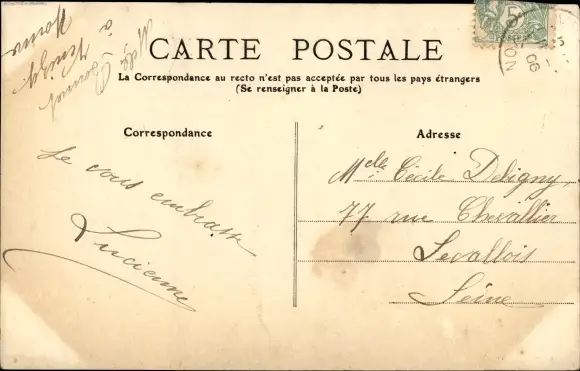 CARTE POSTALE
La Correspondance au recto n'est pas acceptée par tous les pays étrangers
(Se renseigner à la Poste)
Correspondance
Je vous embrasse
Lucienne
Adresse
Melle Cécile Deligny
77 rue Chevallier
Levallois
Seine
à
Yonne
5
06